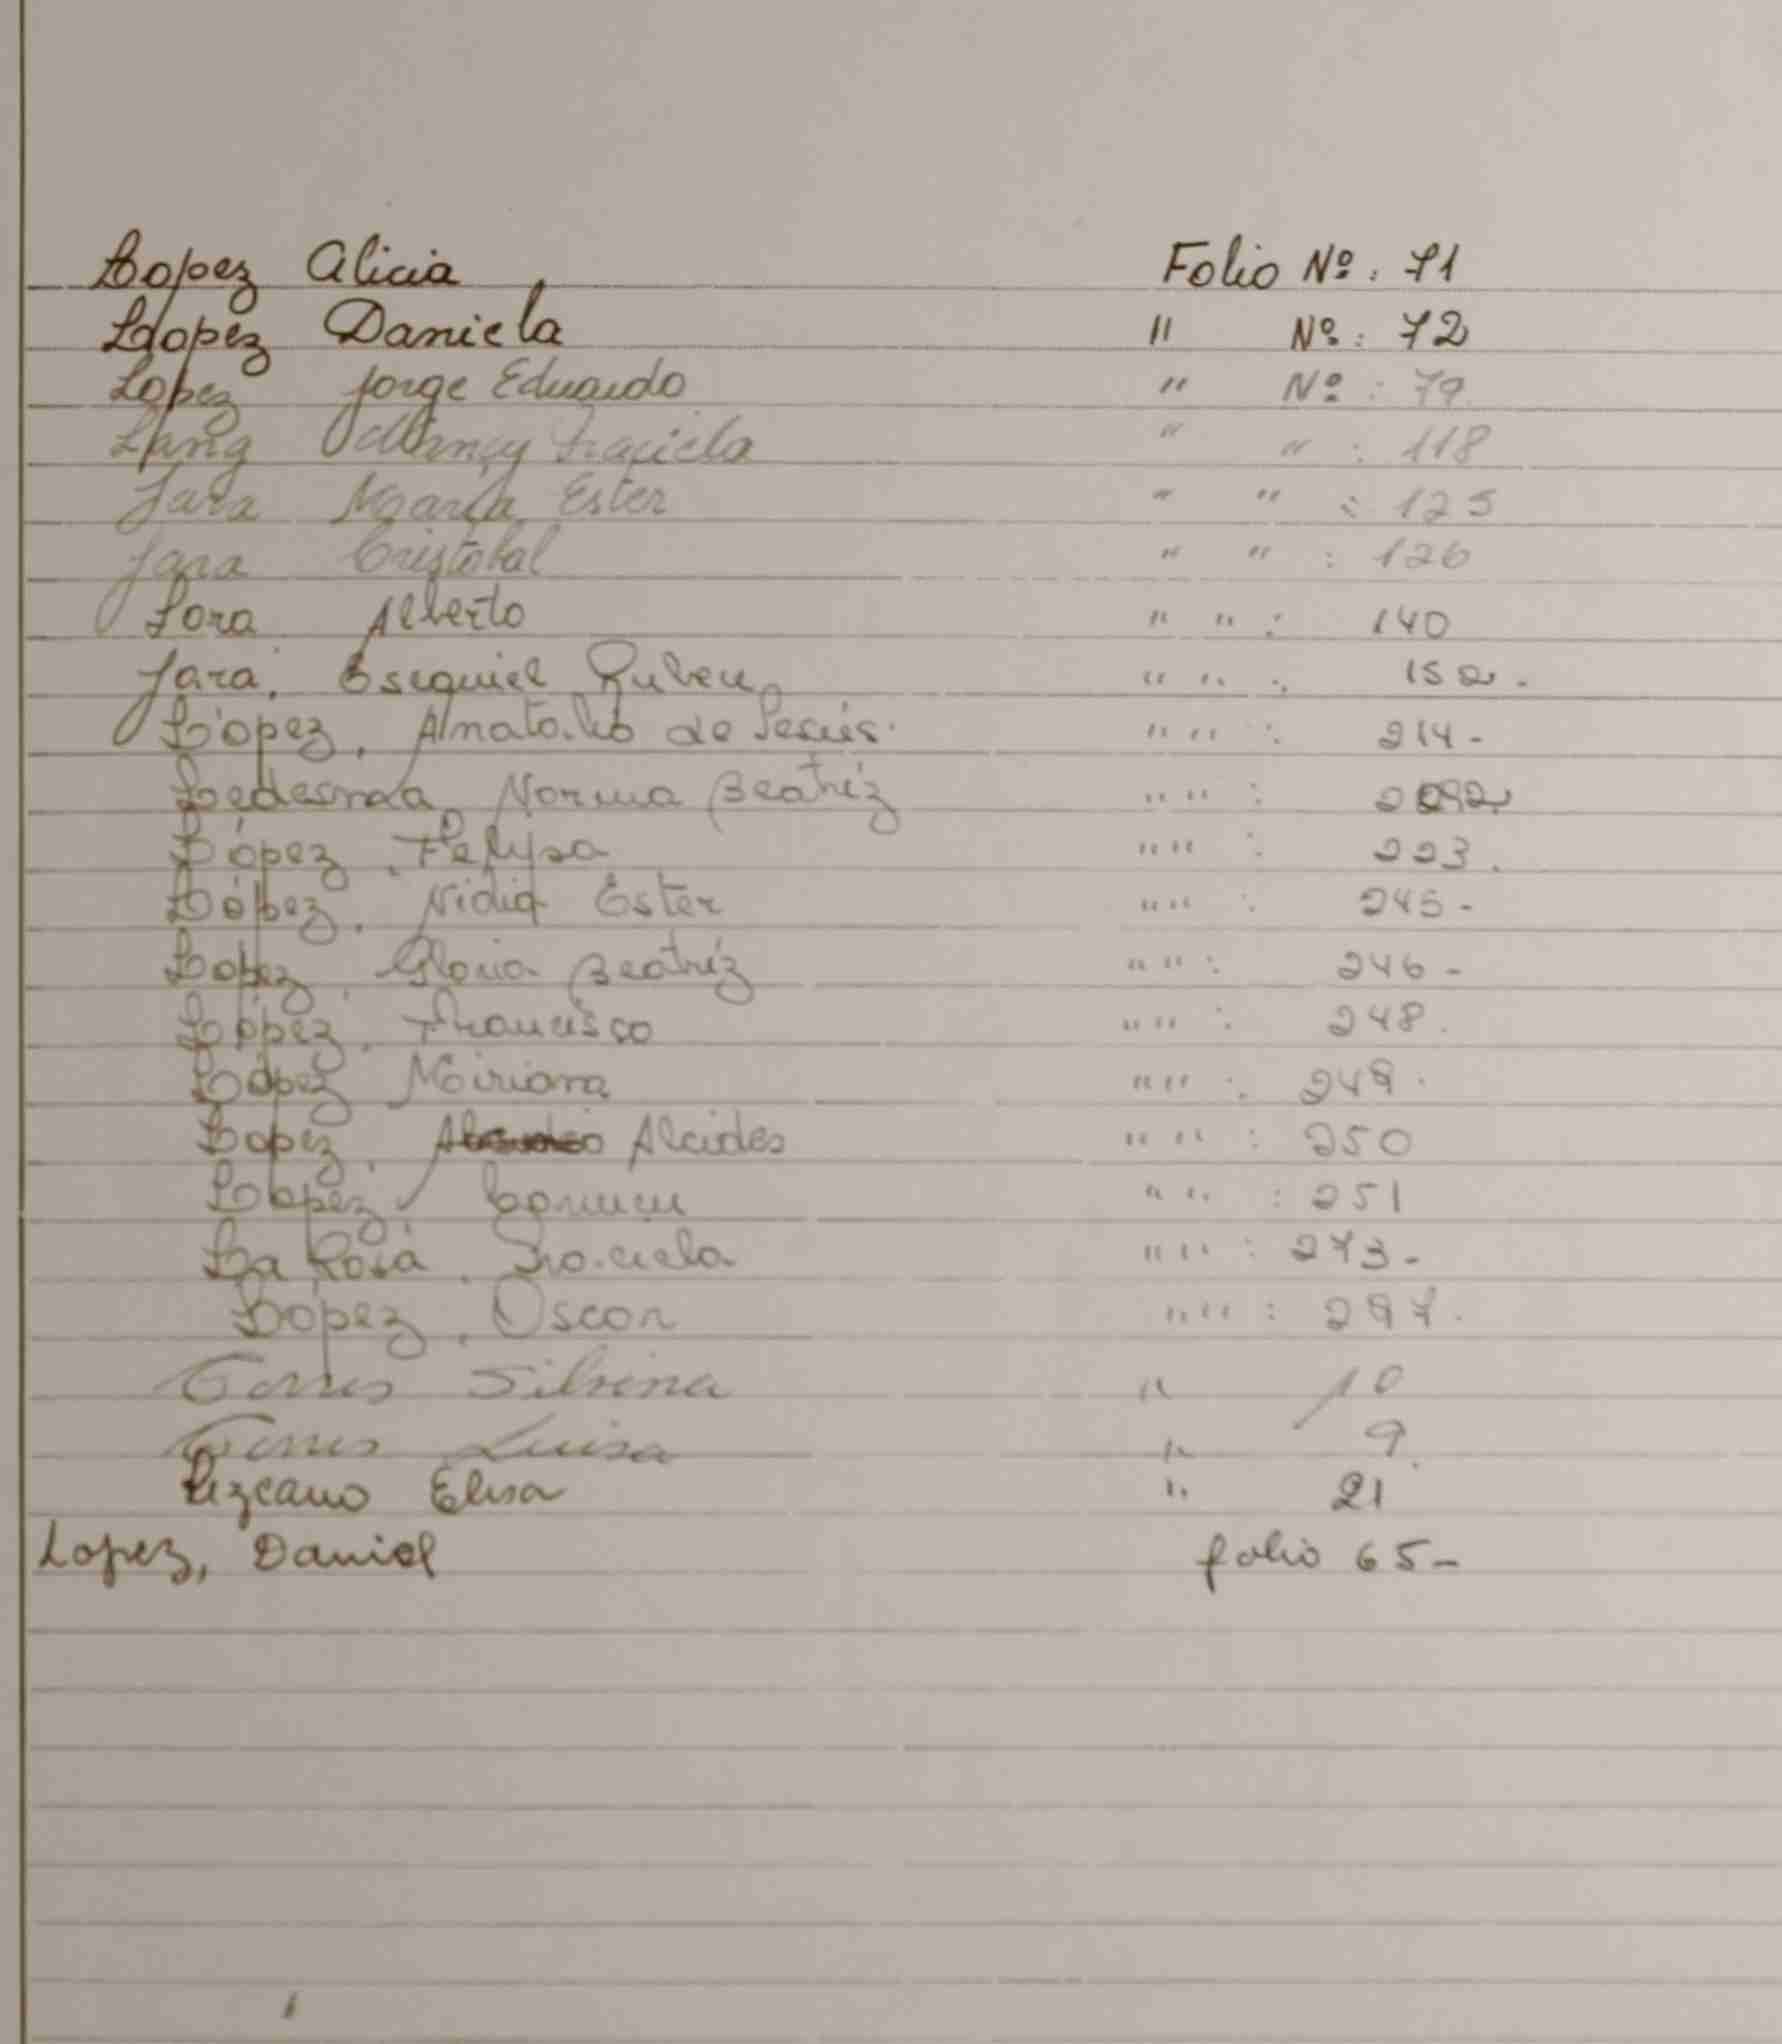 Lopez Alicia Folio Nº: 71
Lopez Daniela " Nº: 72
Lopez Jorge Eduardo " Nº: 79
Lang Nancy Graciela " " : 118
Jara María Ester " " : 125
Jara Cristobal " " : 126
Lora Alberto " " : 140
Jara, Esequiel Ruben " " : 152.
López, Anatolio de Jesús. " " : 214-
Ledesma, Norma Beatríz " " :
López, Felipa " " : 223.
López, Nidia Ester " " : 245-
Lopez, Gloria Beatríz " " : 246-
López, Francisco " " : 248.
López Miriam " " : 249.
Lopez, Alcides " " : 250
Lopez Carmen " " : 251
La Rosa, Graciela " " : 273-
López, Oscar " " : 297.
Torres Silvina " 10
Torres Luisa " 9
Lizcano Elisa " 21
Lopez, Daniel folio 65-